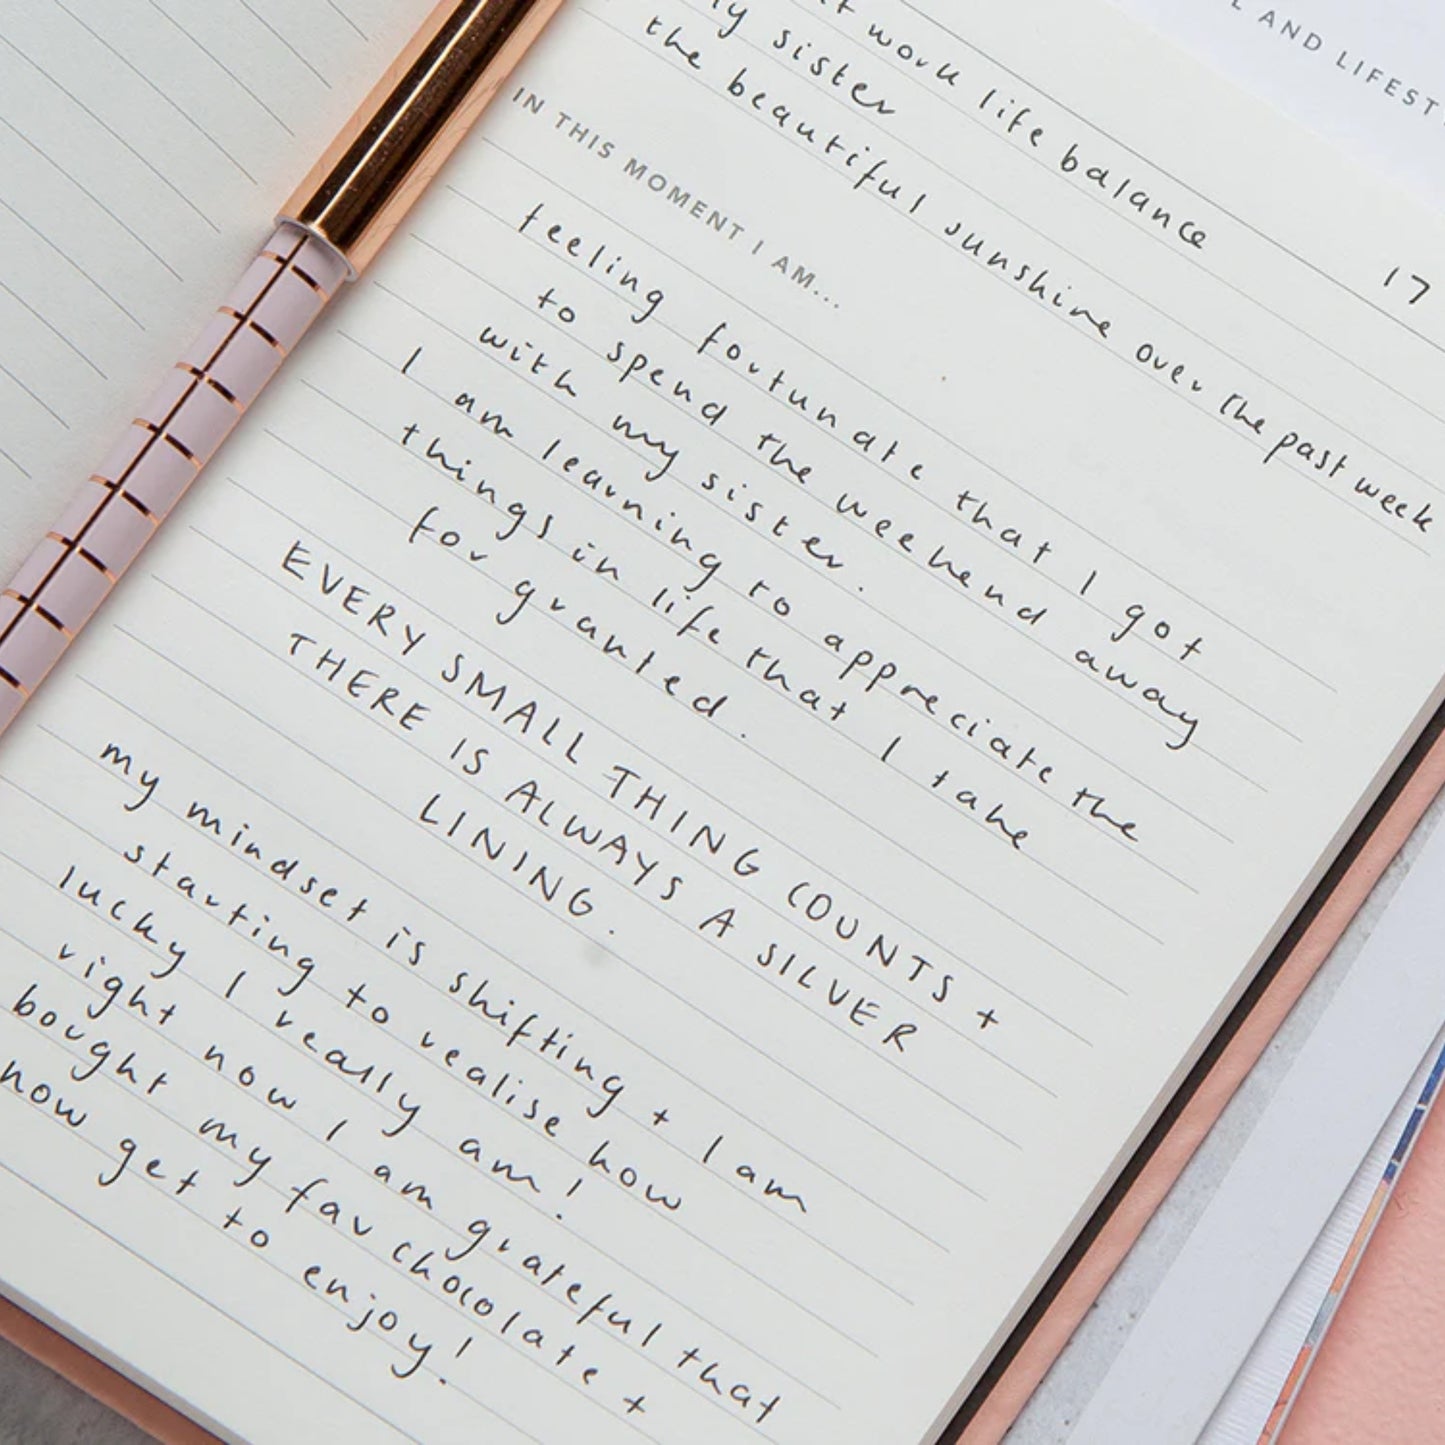 AND LIFEST
work life balance
sister
the beautiful sunshine over the past week
17
IN THIS MOMENT I AM...
feeling fortunate that I got
to spend the weekend away
with my sister.
I am learning to appreciate the
things in life that I take
for granted.
EVERY SMALL THING COUNTS +
THERE IS ALWAYS A SILVER
LINING.
my mindset is shifting + I am
starting to realise how
lucky I really am!
right now I am grateful that
bought my fav chocolate +
now get to enjoy!